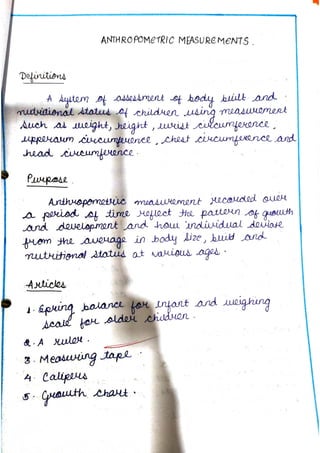 ANTHROPOMETRIC MEASUREMENTS.
Definitions
A system of assessment of body built and
nutritional status of children using measurement
such as weight, height, wrist circumference,
upperarm circumference, chest circumference and
head circumference.
Purpose
Anthropometric measurement recorded over
a period of time reflect the pattern of growth
and development and how individual deviate
from the average in body size, built and
nutritional status at various ages.
Articles
1. Spring balance for infant and weighing
scale for older children.
2. A ruler.
3. Measuring tape.
4. Calipers
5. Growth chart.